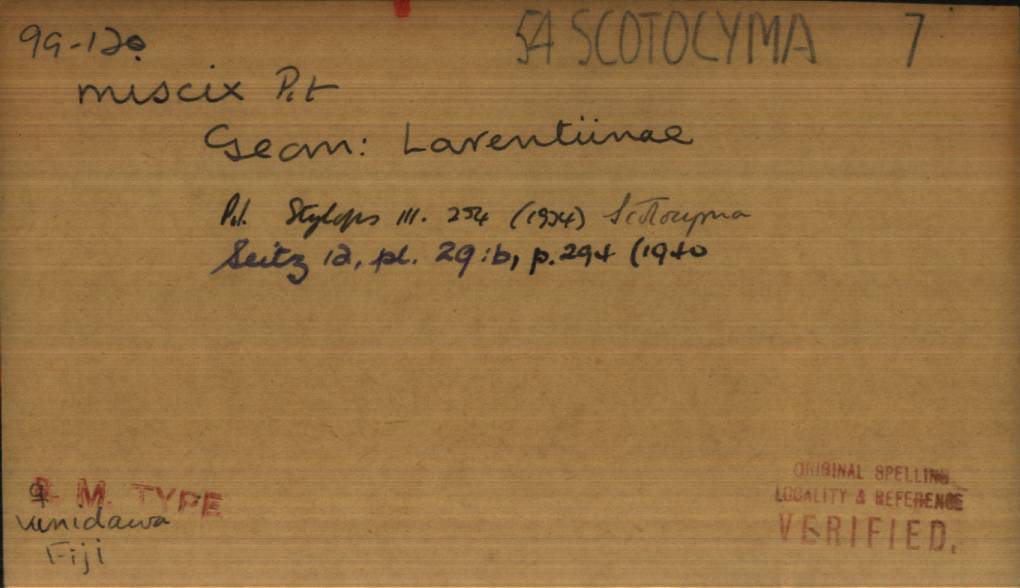 99-120
5A SCOTOCYMA 7
miscix Prt
Geom: Larentiinae
Prt. Stylops III. 254 (1934) Scotocyma
Seitz 12, pl. 29:b, p. 294 (1940
♀ B. M. TYPE
Vunidawa
Fiji
ORIGINAL SPELLING
LOCALITY & REFERENCE
VERIFIED.